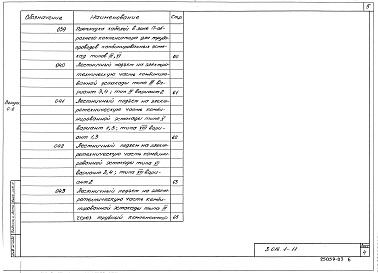 5
Обозначение Наименование Стр.
039 Прокладка кабелей в зоне П-об-
разного компенсатора для трубо-
проводов комбинированных эста-
кад типов IV, V 60
040 Лестничный подъем на электро-
техническую часть комбиниро-
ванной эстакады типа III ва-
риант 3,4; тип IV вариант 2 61
041 Лестничный подъем на элект-
ротехническую часть комби-
нированной эстакады типа V
вариант 1,3; типа VIII вари-
ант 1,3 62
042 Лестничный подъем на элект-
ротехническую часть комбини-
рованной эстакады типа VI
вариант 2,4; типа VII вари-
ант 2 63
043 Лестничный подъем на элект-
ротехническую часть комби-
нированной эстакады типа IV
через трубный компенсатор 65
Выпуск
Лист
4
25059-03 6